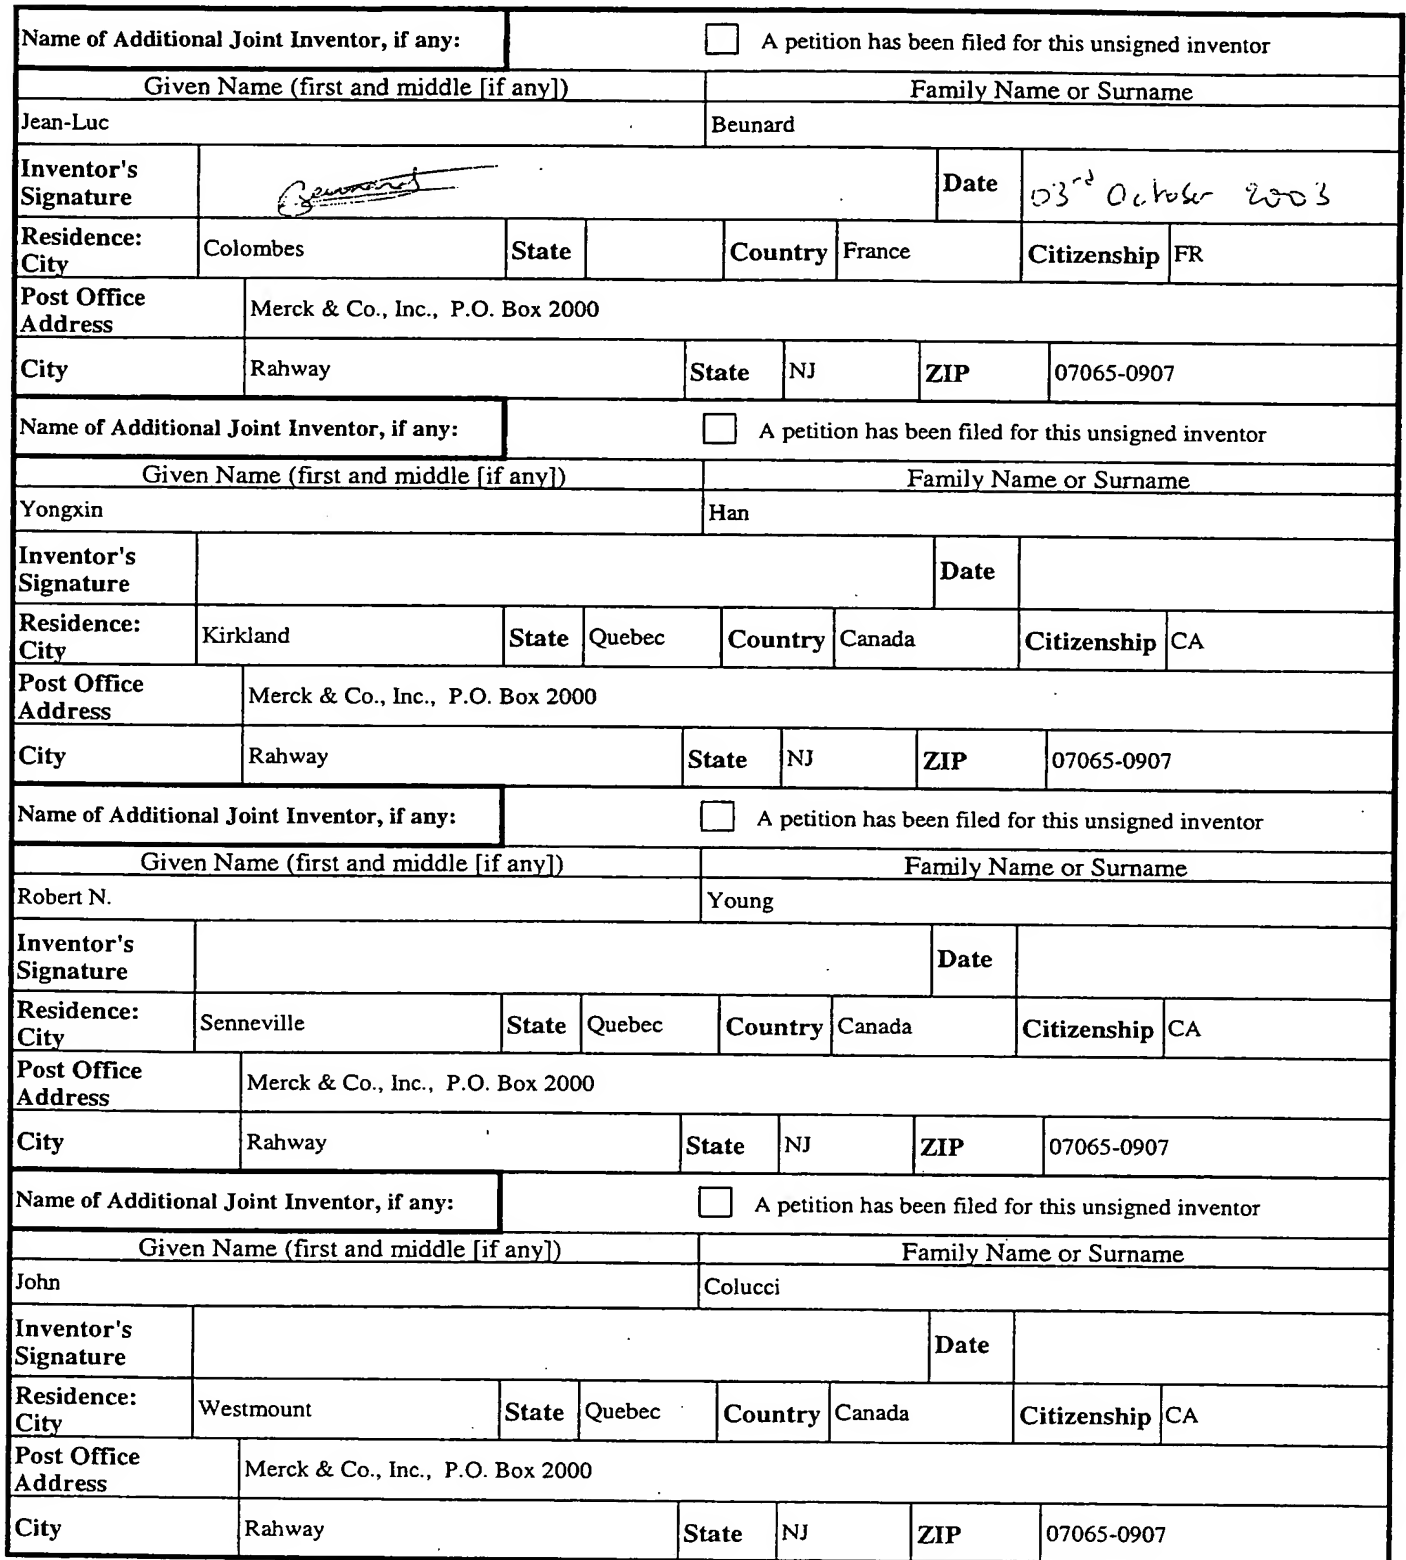 Name of Additional Joint Inventor, if any: A petition has been filed for this unsigned inventor
Given Name (first and middle [if any]) Family Name or Surname
Jean-Luc Beunard
Inventor's Signature Date 03rd October 2003
Residence: City Colombes State Country France Citizenship FR
Post Office Address Merck & Co., Inc., P.O. Box 2000
City Rahway State NJ ZIP 07065-0907
Name of Additional Joint Inventor, if any: A petition has been filed for this unsigned inventor
Given Name (first and middle [if any]) Family Name or Surname
Yongxin Han
Inventor's Signature Date
Residence: City Kirkland State Quebec Country Canada Citizenship CA
Post Office Address Merck & Co., Inc., P.O. Box 2000
City Rahway State NJ ZIP 07065-0907
Name of Additional Joint Inventor, if any: A petition has been filed for this unsigned inventor
Given Name (first and middle [if any]) Family Name or Surname
Robert N. Young
Inventor's Signature Date
Residence: City Senneville State Quebec Country Canada Citizenship CA
Post Office Address Merck & Co., Inc., P.O. Box 2000
City Rahway State NJ ZIP 07065-0907
Name of Additional Joint Inventor, if any: A petition has been filed for this unsigned inventor
Given Name (first and middle [if any]) Family Name or Surname
John Colucci
Inventor's Signature Date
Residence: City Westmount State Quebec Country Canada Citizenship CA
Post Office Address Merck & Co., Inc., P.O. Box 2000
City Rahway State NJ ZIP 07065-0907